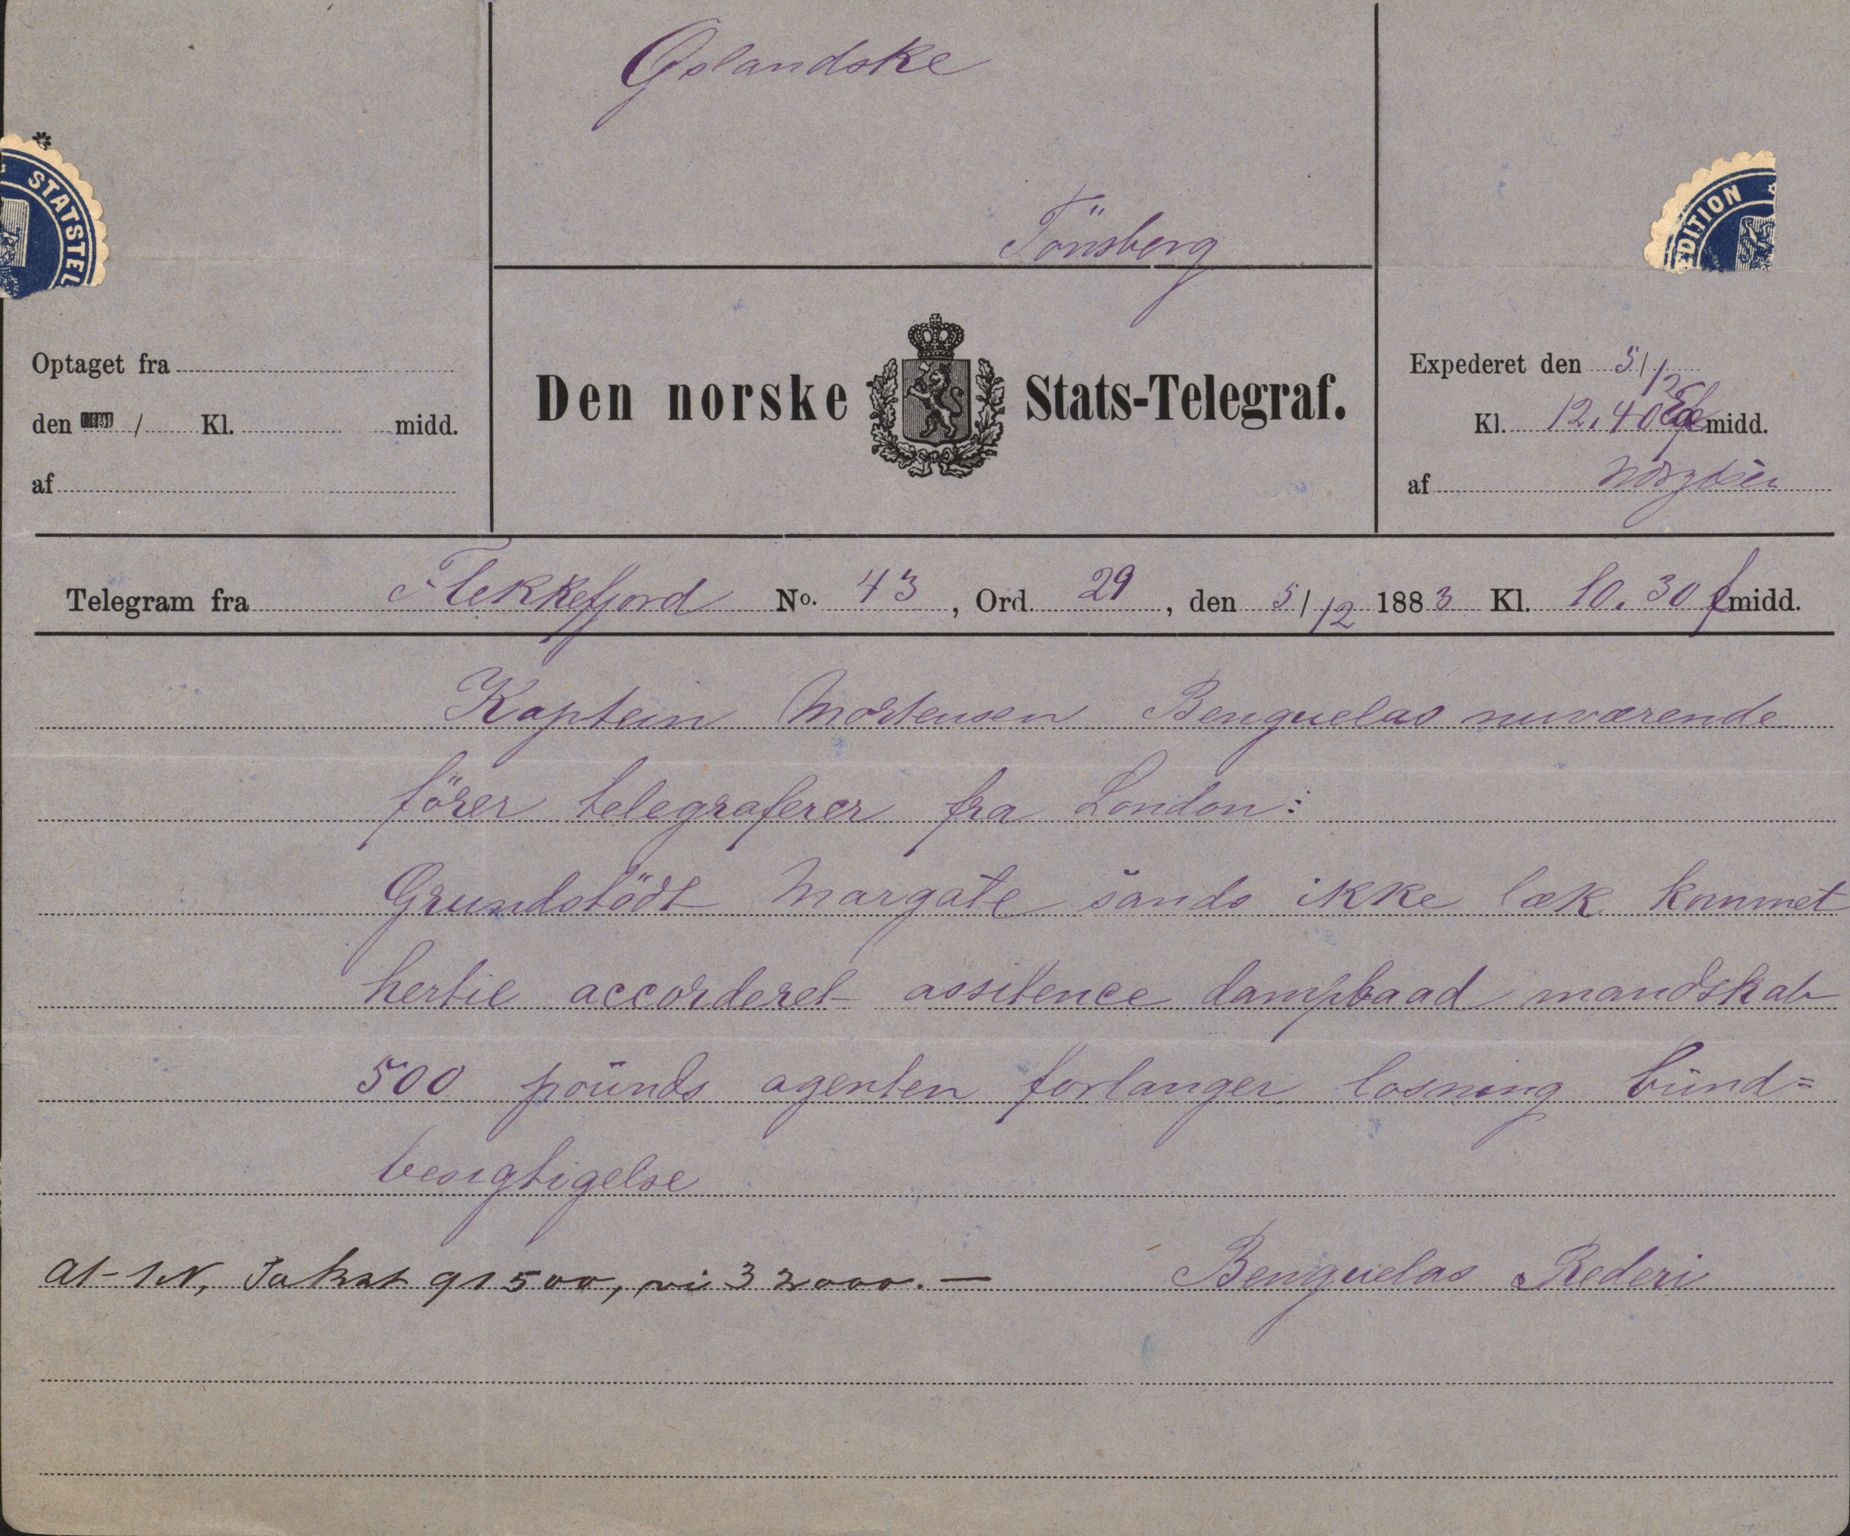 Islandske
Tönsberg
STATSTEL
EDITION
Optaget fra
den / Kl. midd.
af
Den norske Stats-Telegraf.
Expederet den 5/12
Kl. 12,40 Efmidd.
af
Telegram fra Flekkefjord No. 43, Ord. 29, den 5/12 1883 Kl. 10.30 fmidd.
Kaptein Mortensen Benguelas nuværende
förer telegraferer fra London:
Grundstödt Margate sands ikke læk kommet
hertil accorderet assitence dampbaad mandskab
500 pounds agenten forlanger losning bund=
besigtigelse
Benguelas Rederi
Takst 91500, vi 32000.—